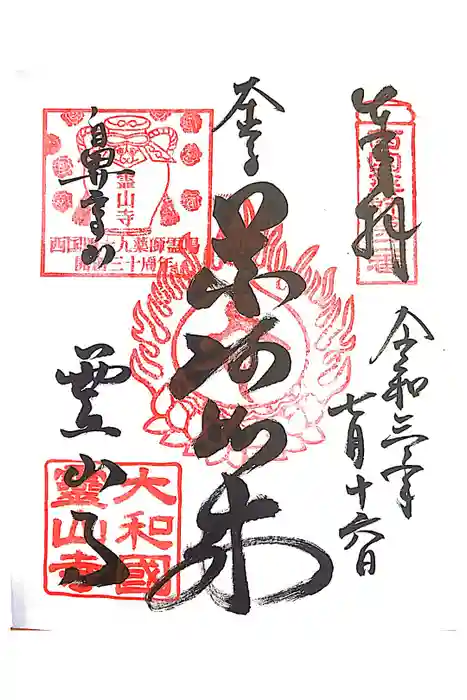 奉拝
令和三年
七月十六日
薬師如来
鼻高山
霊山寺
霊山寺
西国四十九薬師霊場
開創三十周年
大和國
靈山寺